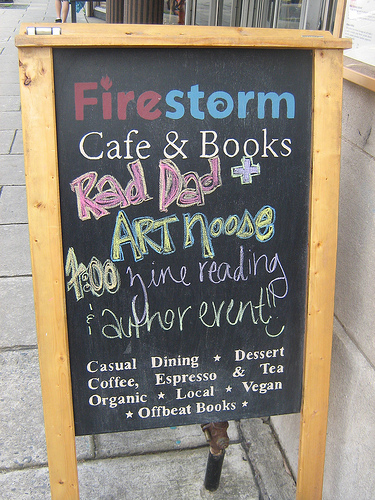 Firestorm
Cafe & Books
Rad Dad +
ART Noose
7:00 zine reading
& author event!!
Casual Dining ★ Dessert
Coffee, Espresso & Tea
Organic ★ Local ★ Vegan
★ Offbeat Books ★